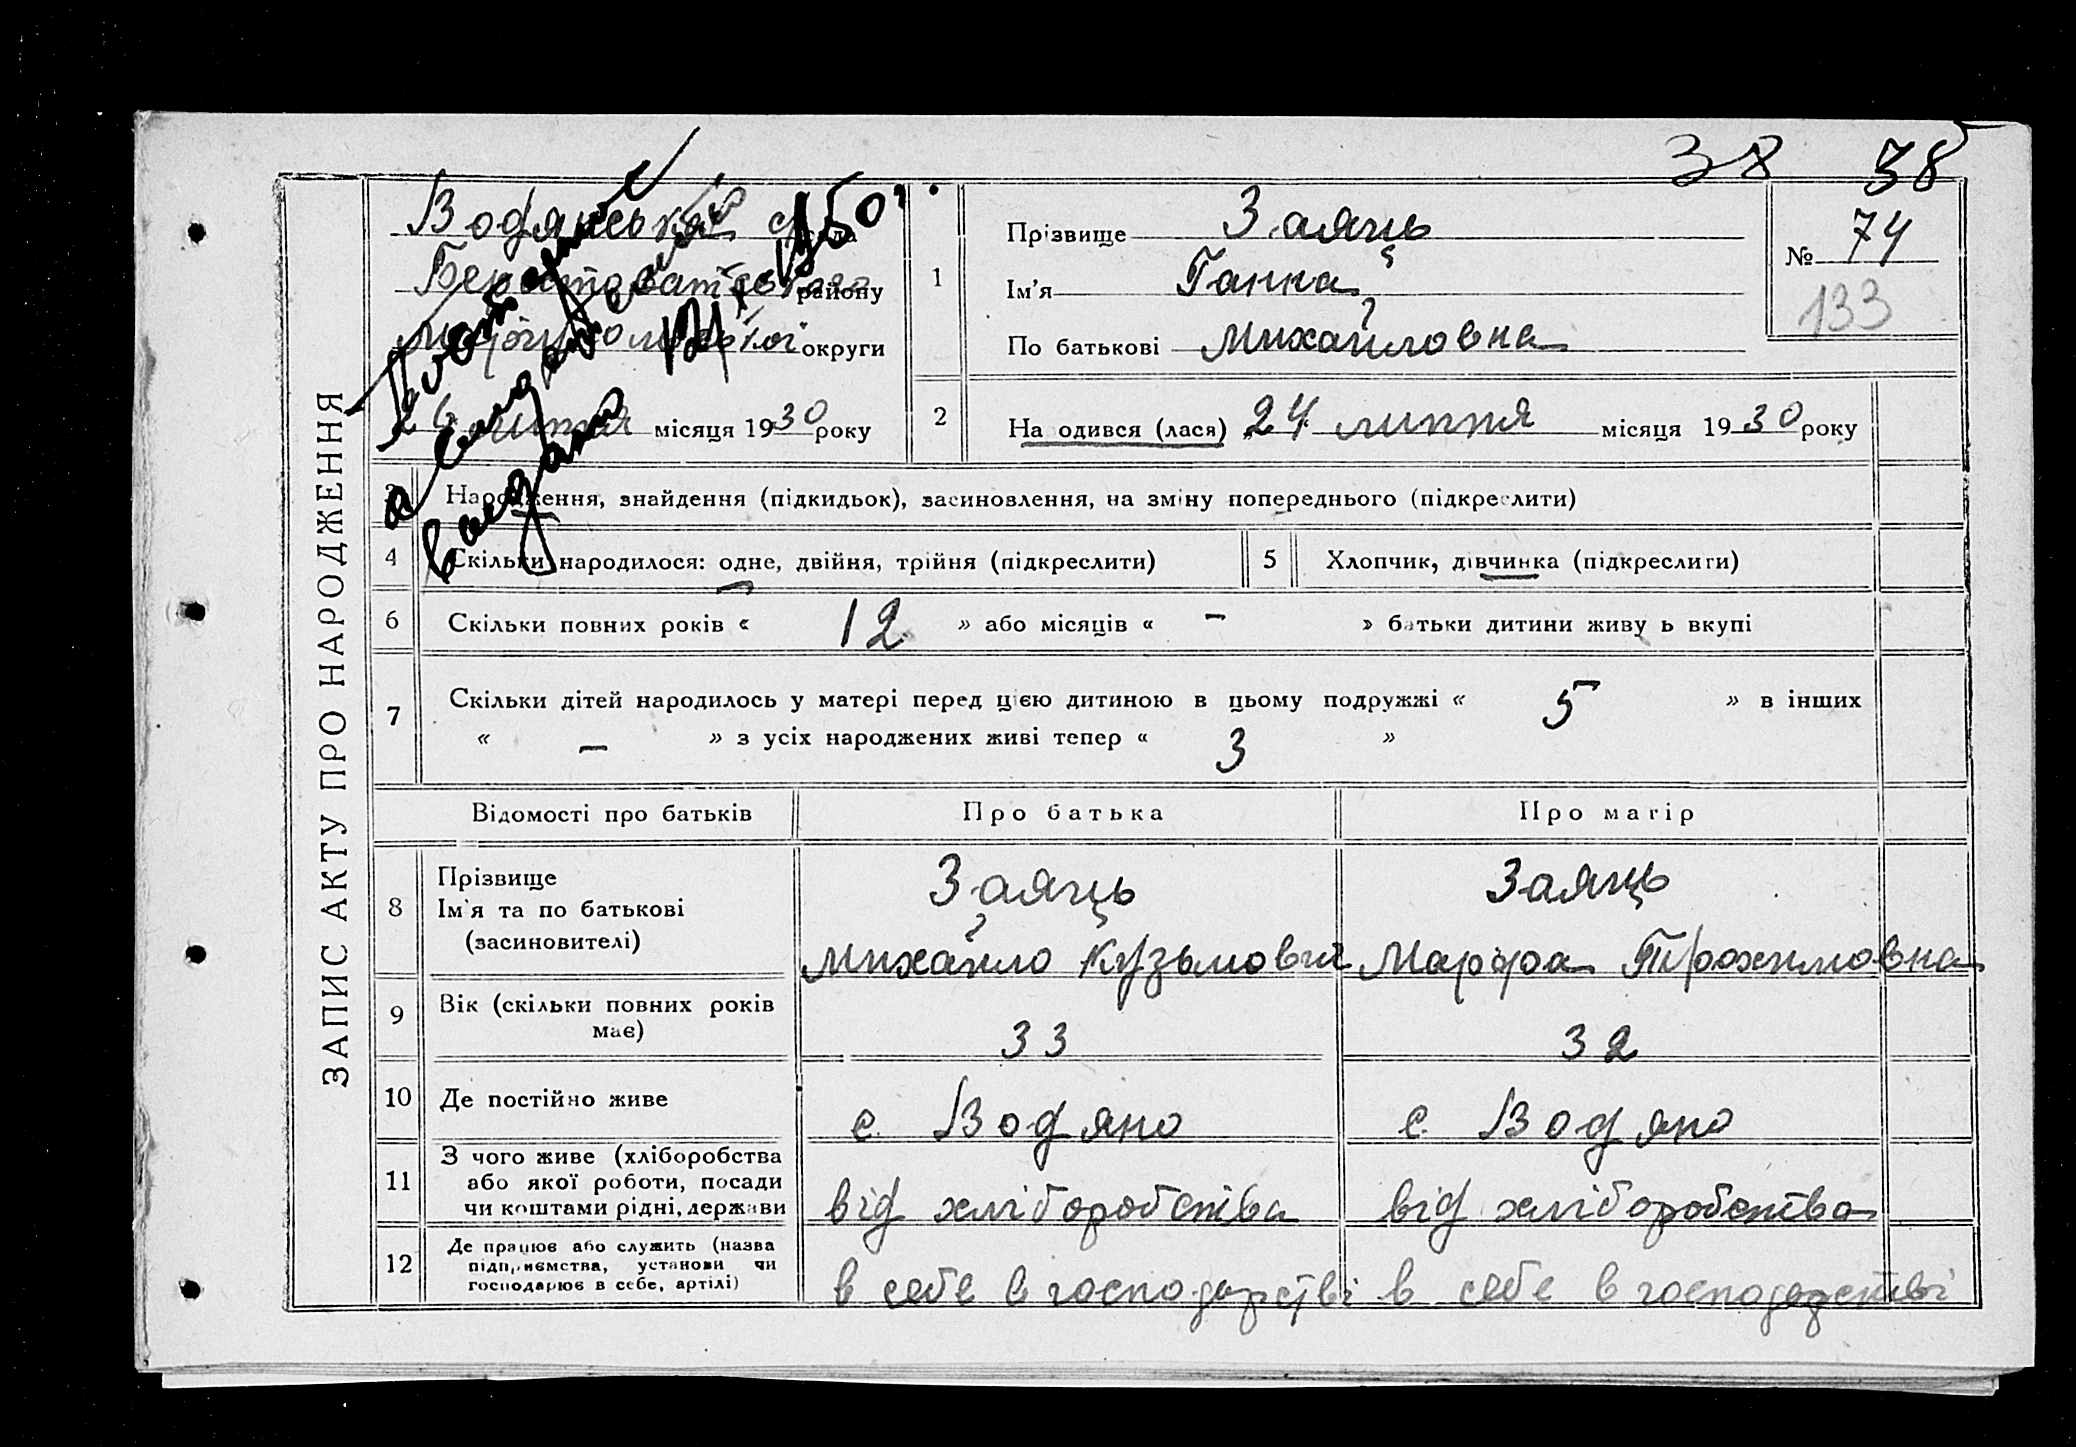 38 38
ЗАПИС АКТУ ПРО НАРОДЖЕННЯ
Водянська с рада
району
округи
26 липня місяця 1930 року
Повторне
видано
1 Прізвище Заяць
Ім'я Ганна
По батькові Михайловна
№ 74
133
2 На одився (лася) 24 липня місяця 1930 року
3 Народження, знайдення (підкидьок), засиновлення, на зміну попереднього (підкреслити)
4 Скільки народилося: одне, двійня, трійня (підкреслити) 5 Хлопчик, дівчинка (підкреслити)
6 Скільки повних років « 12 » або місяців « – » батьки дитини живу ь вкупі
7 Скільки дітей народилось у матері перед цією дитиною в цьому подружжі « 5 » в інших
« – » з усіх народжених живі тепер « 3 »
Відомості про батьків Про батька Про матір
8 Прізвище Заяць Заяць
Ім'я та по батькові
(засиновителі) Михайло Кузьмович Марфа Трохимовна
9 Вік (скільки повних років
має) 33 32
10 Де постійно живе с. Водяно с. Водяно
11 З чого живе (хліборобства
або якої роботи, посади
чи коштами рідні, держави від хліборобства від хліборобства
12 Де працює або служить (назва
підприємства, установи чи
господарює в себе, артілі) в себе в господарстві в себе в господарстві